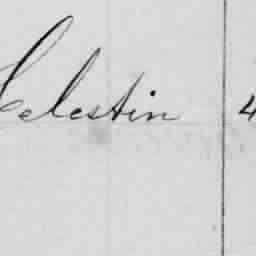 Celestin 4